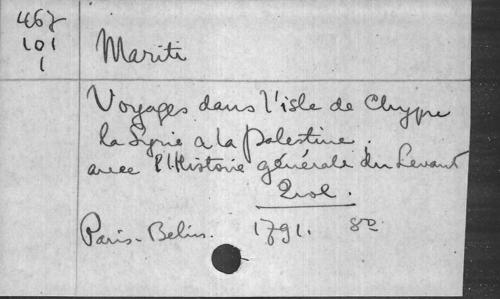 467
101
1
Mariti
Voyages dans l'isle de Chypre
la Syrie a la Palestine.
avec l'Histoire générale du Levant
2 vol.
Paris-Belin. 1791. 8º